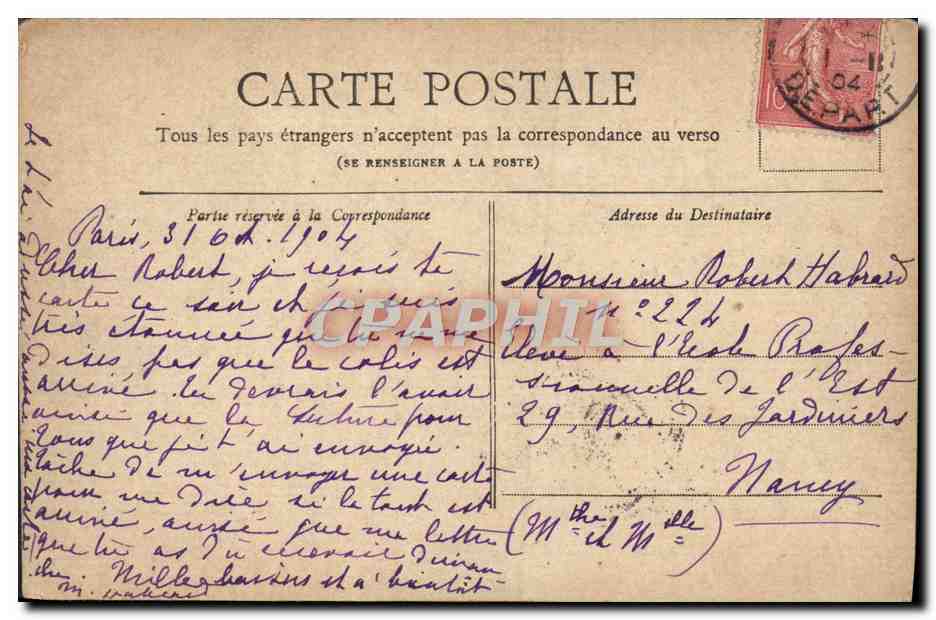 CARTE POSTALE
Tous les pays étrangers n'acceptent pas la correspondance au verso
(SE RENSEIGNER A LA POSTE)
10
04
DEPART
Partie réservée à la Correspondance
Paris, 31 Oct. 1904
Cher Robert, je reçois ta
carte ce soir et je suis
très étonnée que tu ne me
dises pas que le colis est
arrivé. tu devrais l'avoir
ainsi que la lettre pour
tous que je t'ai envoyé.
tâche de m'envoyer une carte
pour me dire si le tout est
arrivé, aussi que ma lettre
que tu as dû recevoir
Mille baisers et à bientôt
Adresse du Destinataire
Monsieur Robert Habrard
n° 224
Elève à l'Ecole Profes-
sionnelle de l'Est
29, Rue des Jardiniers
Nancy
(Mthe et Mlle)
CPAPHIL